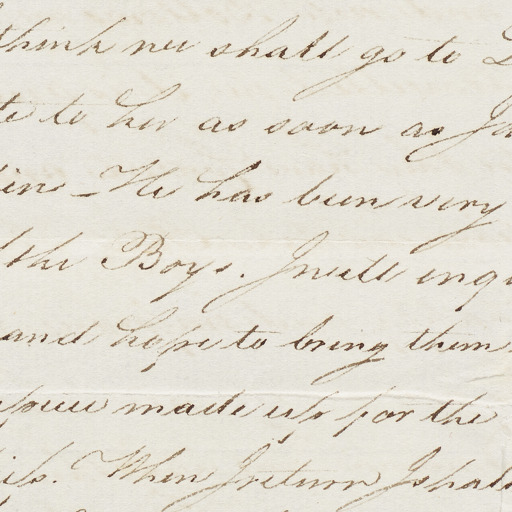 think we shall go to
to her as soon as
- He has been very
the Boys. I will
and hope to bring them
made up for the
When I return I shall